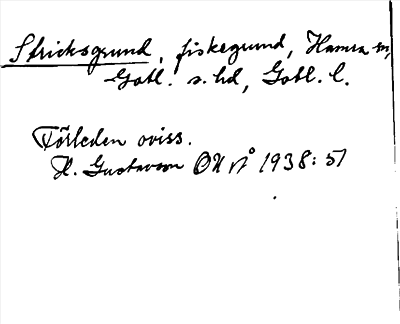 Stricksgrund, fiskegrund, Hamra sn,
Gotl. s. hd, Gotl. l.
Förleden oviss.
H. Gustavson ONÅ 1938: 57